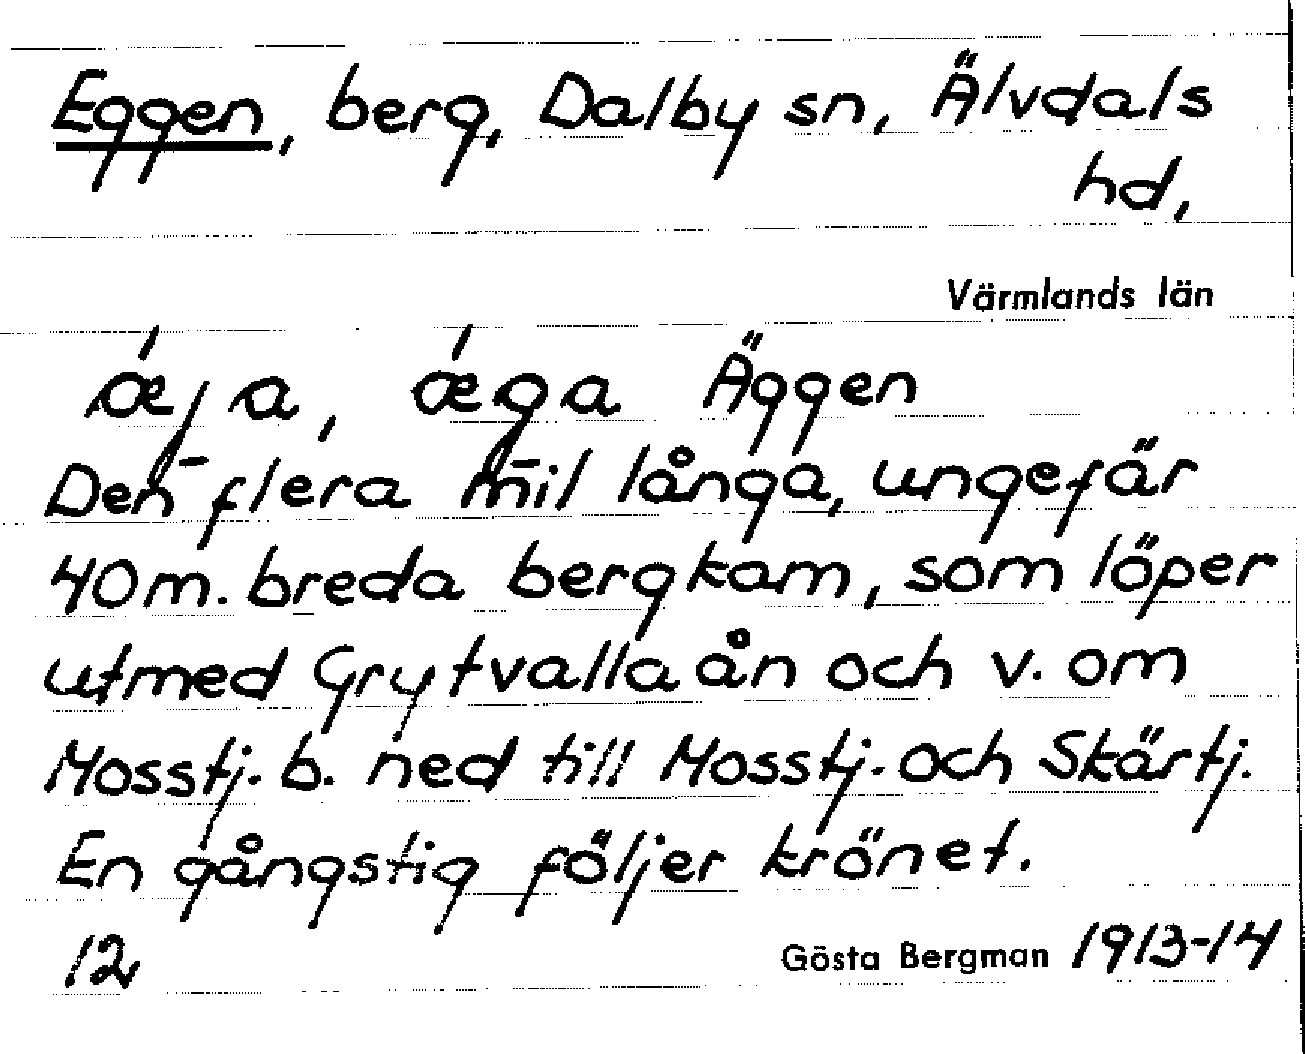 Eggen, berg, Dalby sn, Älvdals
hd,
Värmlands län
ǽja, ǽga Äggen
Den flera mil långa, ungefär
40 m. breda bergkam, som löper
utmed Grytvallaån och v. om
Mosstj. b. ned till Mosstj. och Skärtj.
En gångstig följer krönet.
12 Gösta Bergman 1913-14